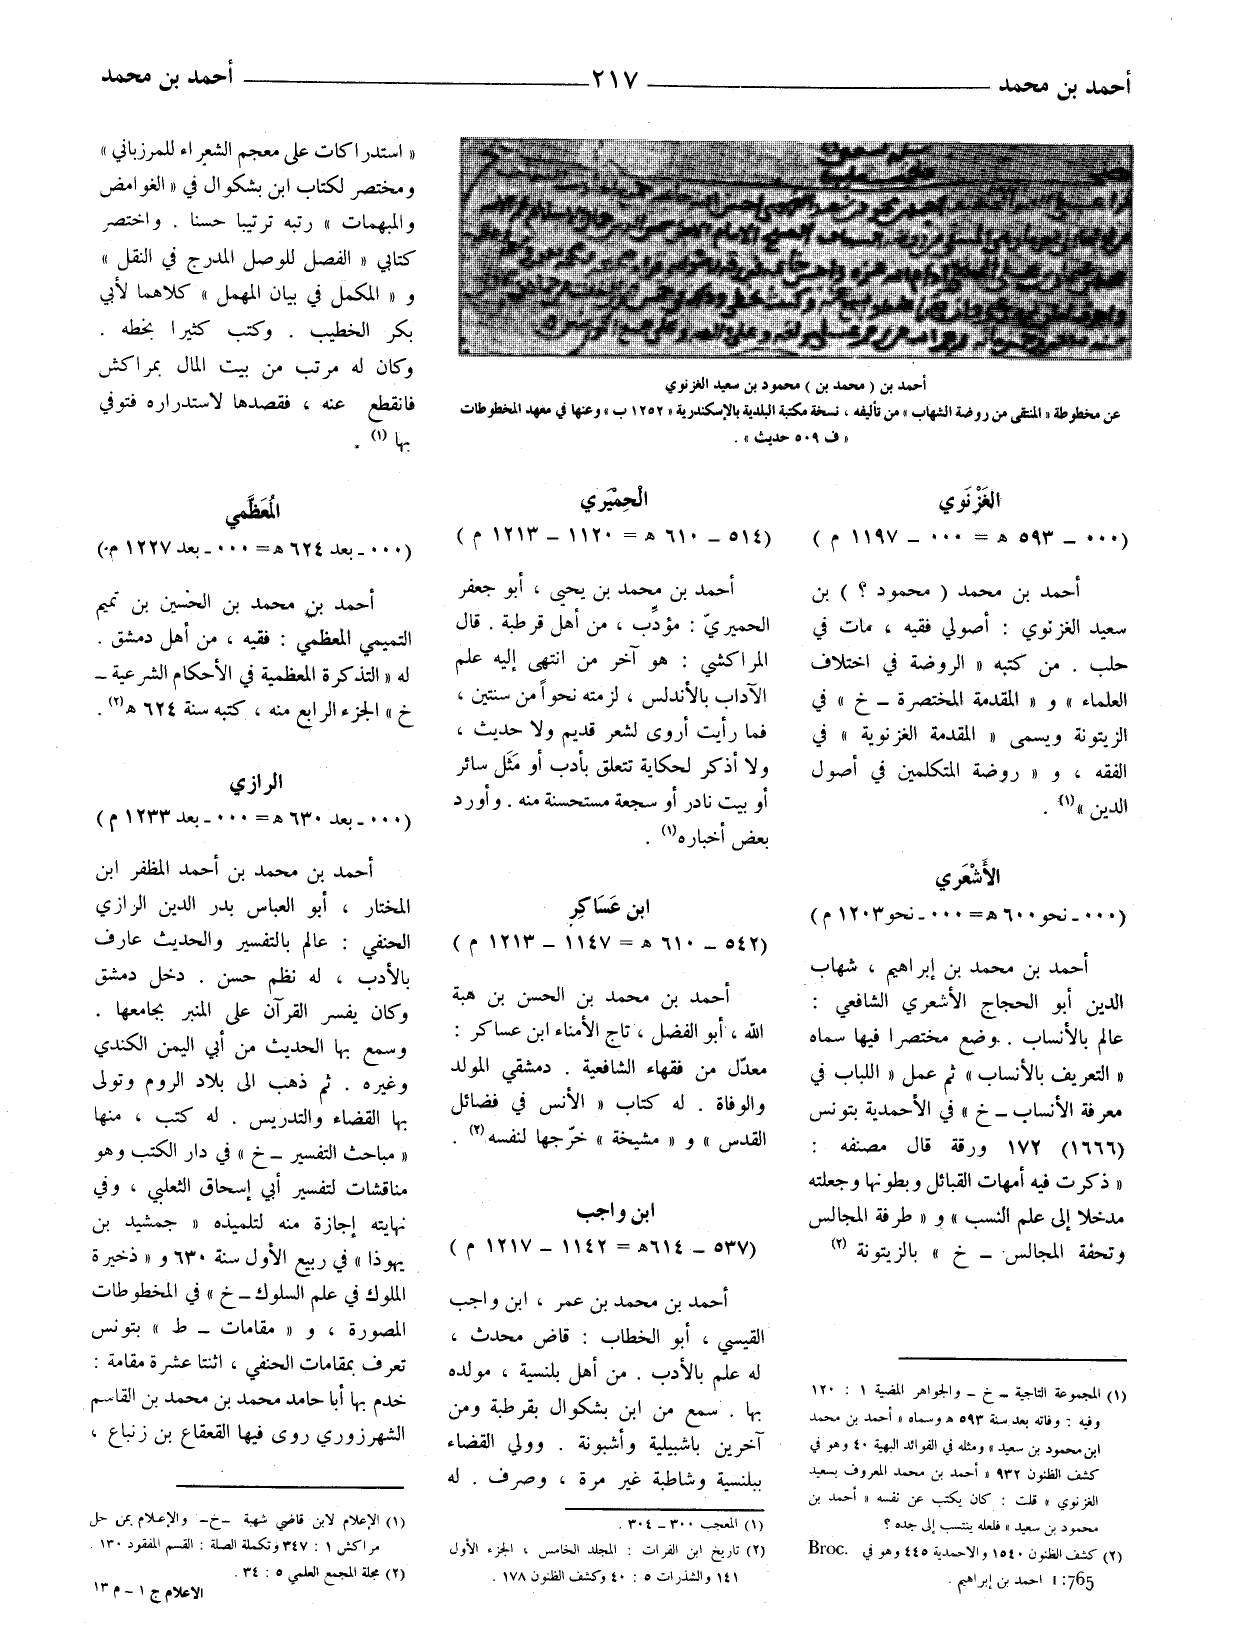 أحمد بن محمد ــــ ٢١٧ ــــ أحمد بن محمد
أحمد بن ( محمد بن ) محمود بن سعيد الغزنوي
عن مخطوطة « المنتقى من روضة الشهاب » من تأليفه ، نسخة مكتبة البلدية بالإسكندرية « ١٢٥٢ ب » وعنها في معهد المخطوطات
« ف ٥٠٩ حديث » .
الغَزْنَوي
(٠٠٠ ــ ٥٩٣ هـ = ٠٠٠ ــ ١١٩٧ م )
أحمد بن محمد ( محمود ؟ ) بن
سعيد الغزنوي : أصولي فقيه ، مات في
حلب . من كتبه « الروضة في اختلاف
العلماء » و « المقدمة المختصرة ــ خ » في
الزيتونة ويسمى « المقدمة الغزنوية » في
الفقه ، و « روضة المتكلمين في أصول
الدين »(١) .
الأَشْعَري
(٠٠٠ ــ نحو ٦٠٠ هـ = ٠٠٠ ــ نحو ١٢٠٣ م)
أحمد بن محمد بن إبراهيم ، شهاب
الدين أبو الحجاج الأشعري الشافعي :
عالم بالأنساب . وضع مختصرا فيها سماه
« التعريف بالأنساب » ثم عمل « اللباب في
معرفة الأنساب ــ خ » في الأحمدية بتونس
(١٦٦٦) ١٧٢ ورقة قال مصنفه :
« ذكرت فيه أمهات القبائل وبطونها وجعلته
مدخلا إلى علم النسب » و « طرفة المجالس
وتحفة المجالس ــ خ » بالزيتونة (٢)
(١) المجموعة التاجية ــ خ ــ والجواهر المضية ١ : ١٢٠
وفيه : وفاته بعد سنة ٥٩٣ هـ وسماه « أحمد بن محمد
ابن محمود بن سعيد » ومثله في الفوائد البهية ٤٠ وهو في
كشف الظنون ٩٣٢ « أحمد بن محمد المعروف بسعيد
الغزنوي » قلت : كان يكتب عن نفسه « أحمد بن
محمود بن سعيد » فلعله ينتسب إلى جده ؟
(٢) كشف الظنون ١٥٤٠ والاحمدية ٤٤٥ وهو في Broc.
I :765 احمد بن إبراهيم .
الْحِمْيَري
(٥١٤ ــ ٦١٠ هـ = ١١٢٠ ــ ١٢١٣ م )
أحمد بن محمد بن يحيى ، أبو جعفر
الحميريّ : مؤدِّب ، من أهل قرطبة . قال
المراكشي : هو آخر من انتهى إليه علم
الآداب بالأندلس ، لزمته نحواً من سنتين ،
فما رأيت أروى لشعر قديم ولا حديث ،
ولا أذكر لحكاية تتعلق بأدب أو مَثَل سائر
أو بيت نادر أو سجعة مستحسنة منه . وأورد
بعض أخباره(١) .
ابن عَسَاكِر
(٥٤٢ ــ ٦١٠ هـ = ١١٤٧ ــ ١٢١٣ م )
أحمد بن محمد بن الحسن بن هبة
الله ، أبو الفضل ، تاج الأمناء ابن عساكر :
معدّل من فقهاء الشافعية . دمشقي المولد
والوفاة . له كتاب « الأنس في فضائل
القدس » و « مشيخة » خرّجها لنفسه(٢) .
ابن واجب
(٥٣٧ ــ ٦١٤هـ = ١١٤٢ ــ ١٢١٧ م )
أحمد بن محمد بن عمر ، ابن واجب
القيسي ، أبو الخطاب : قاض محدث ،
له علم بالأدب . من أهل بلنسية ، مولده
بها . سمع من ابن بشكوال بقرطبة ومن
آخرين باشبيلية وأشبونة . وولي القضاء
ببلنسية وشاطبة غير مرة ، وصرف . له
(١) المعجب ٣٠٠ ــ ٣٠٤ .
(٢) تاريخ ابن الفرات : المجلد الخامس ، الجزء الأول
١٤١ والشذرات ٥ : ٤٠ وكشف الظنون ١٧٨ .
« استدراكات على معجم الشعراء للمرزباني »
ومختصر لكتاب ابن بشكوال في « الغوامض
والمبهمات » رتبه ترتيبا حسنا . واختصر
كتابي « الفصل للوصل المدرج في النقل »
و « المكمل في بيان المهمل » كلاهما لأبي
بكر الخطيب . وكتب كثيرا بخطه .
وكان له مرتب من بيت المال بمراكش
فانقطع عنه ، فقصدها لاستدراره فتوفي
بها (١) .
المُعَظَّمي
(٠٠٠ ــ بعد ٦٢٤ هـ = ٠٠٠ ــ بعد ١٢٢٧ م)
أحمد بن محمد بن الحسين بن تميم
التميمي المعظمي : فقيه ، من أهل دمشق .
له « التذكرة المعظمية في الأحكام الشرعية ــ
خ » الجزء الرابع منه ، كتبه سنة ٦٢٤ هـ(٢) .
الرازي
(٠٠٠ ــ بعد ٦٣٠ هـ = ٠٠٠ ــ بعد ١٢٣٣ م)
أحمد بن محمد بن أحمد المظفر ابن
المختار ، أبو العباس بدر الدين الرازي
الحنفي : عالم بالتفسير والحديث عارف
بالأدب ، له نظم حسن . دخل دمشق
وكان يفسر القرآن على المنبر بجامعها .
وسمع بها الحديث من أبي اليمن الكندي
وغيره . ثم ذهب الى بلاد الروم وتولى
بها القضاء والتدريس . له كتب ، منها
« مباحث التفسير ــ خ » في دار الكتب وهو
مناقشات لتفسير أبي إسحاق الثعلبي ، وفي
نهايته إجازة منه لتلميذه « جمشيد بن
يهوذا » في ربيع الأول سنة ٦٣٠ و « ذخيرة
الملوك في علم السلوك ــ خ » في المخطوطات
المصورة ، و « مقامات ــ ط » بتونس
تعرف بمقامات الحنفي ، اثنتا عشرة مقامة :
خدم بها أبا حامد محمد بن محمد بن القاسم
الشهرزوري روى فيها القعقاع بن زنباع ،
(١) الإعلام لابن قاضي شهبة ــ خ ــ والإعلام بمن حل
مراكش ١ : ٣٤٧ وتكملة الصلة : القسم المفقود ١٣٠ .
(٢) مجلة المجمع العلمي ٥ : ٣٤ .
الاعلام ج ١ ــ م ١٣